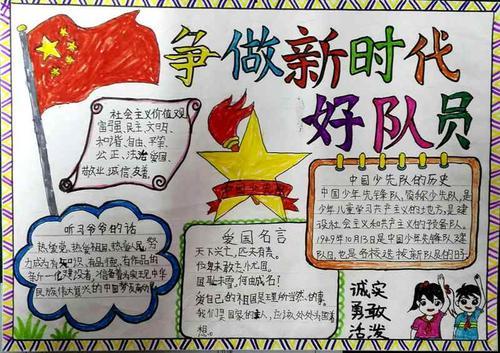 争做新时代
好队员
社会主义价值观
富强、民主、文明、
和谐、自由、平等、
公正、法治、爱国、
敬业、诚信、友善
中国少先队
中国少先队的历史
中国少年先锋队,简称少先队,是
少年儿童学习共产主义的地方,是建
设社会主义和共产主义的预备队。
1949年10月13日是中国少年先锋队建
队日,也是各校选拔新队员的时
听习爷爷的话
热爱党、热爱祖国、热爱人民,努
力成为有知识、有品德、有作品的
新一代建设者,
民族伟大复兴的中国梦
爱国名言
天下兴亡,匹夫有责。
位卑未敢忘忧国。
国耻未雪,何由成名!
爱自己的祖国是理所当然的事。
我们是国家的主人,应该处处为国着
想。
诚实
勇敢
活泼